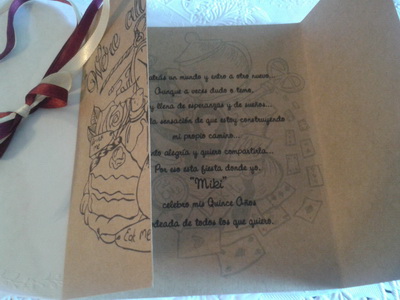 We're all
Eat ME
un mundo y entro a otro nuevo...
Aunque a veces dudo o tema,
y llena de esperanzas y de sueños...
la sensación de que estoy construyendo
mi propio camino...
alegría y quiero compartirla...
Por eso esta fiesta donde yo,
"Miki"
celebro mis Quince Años
rodeada de todos los que quiero.